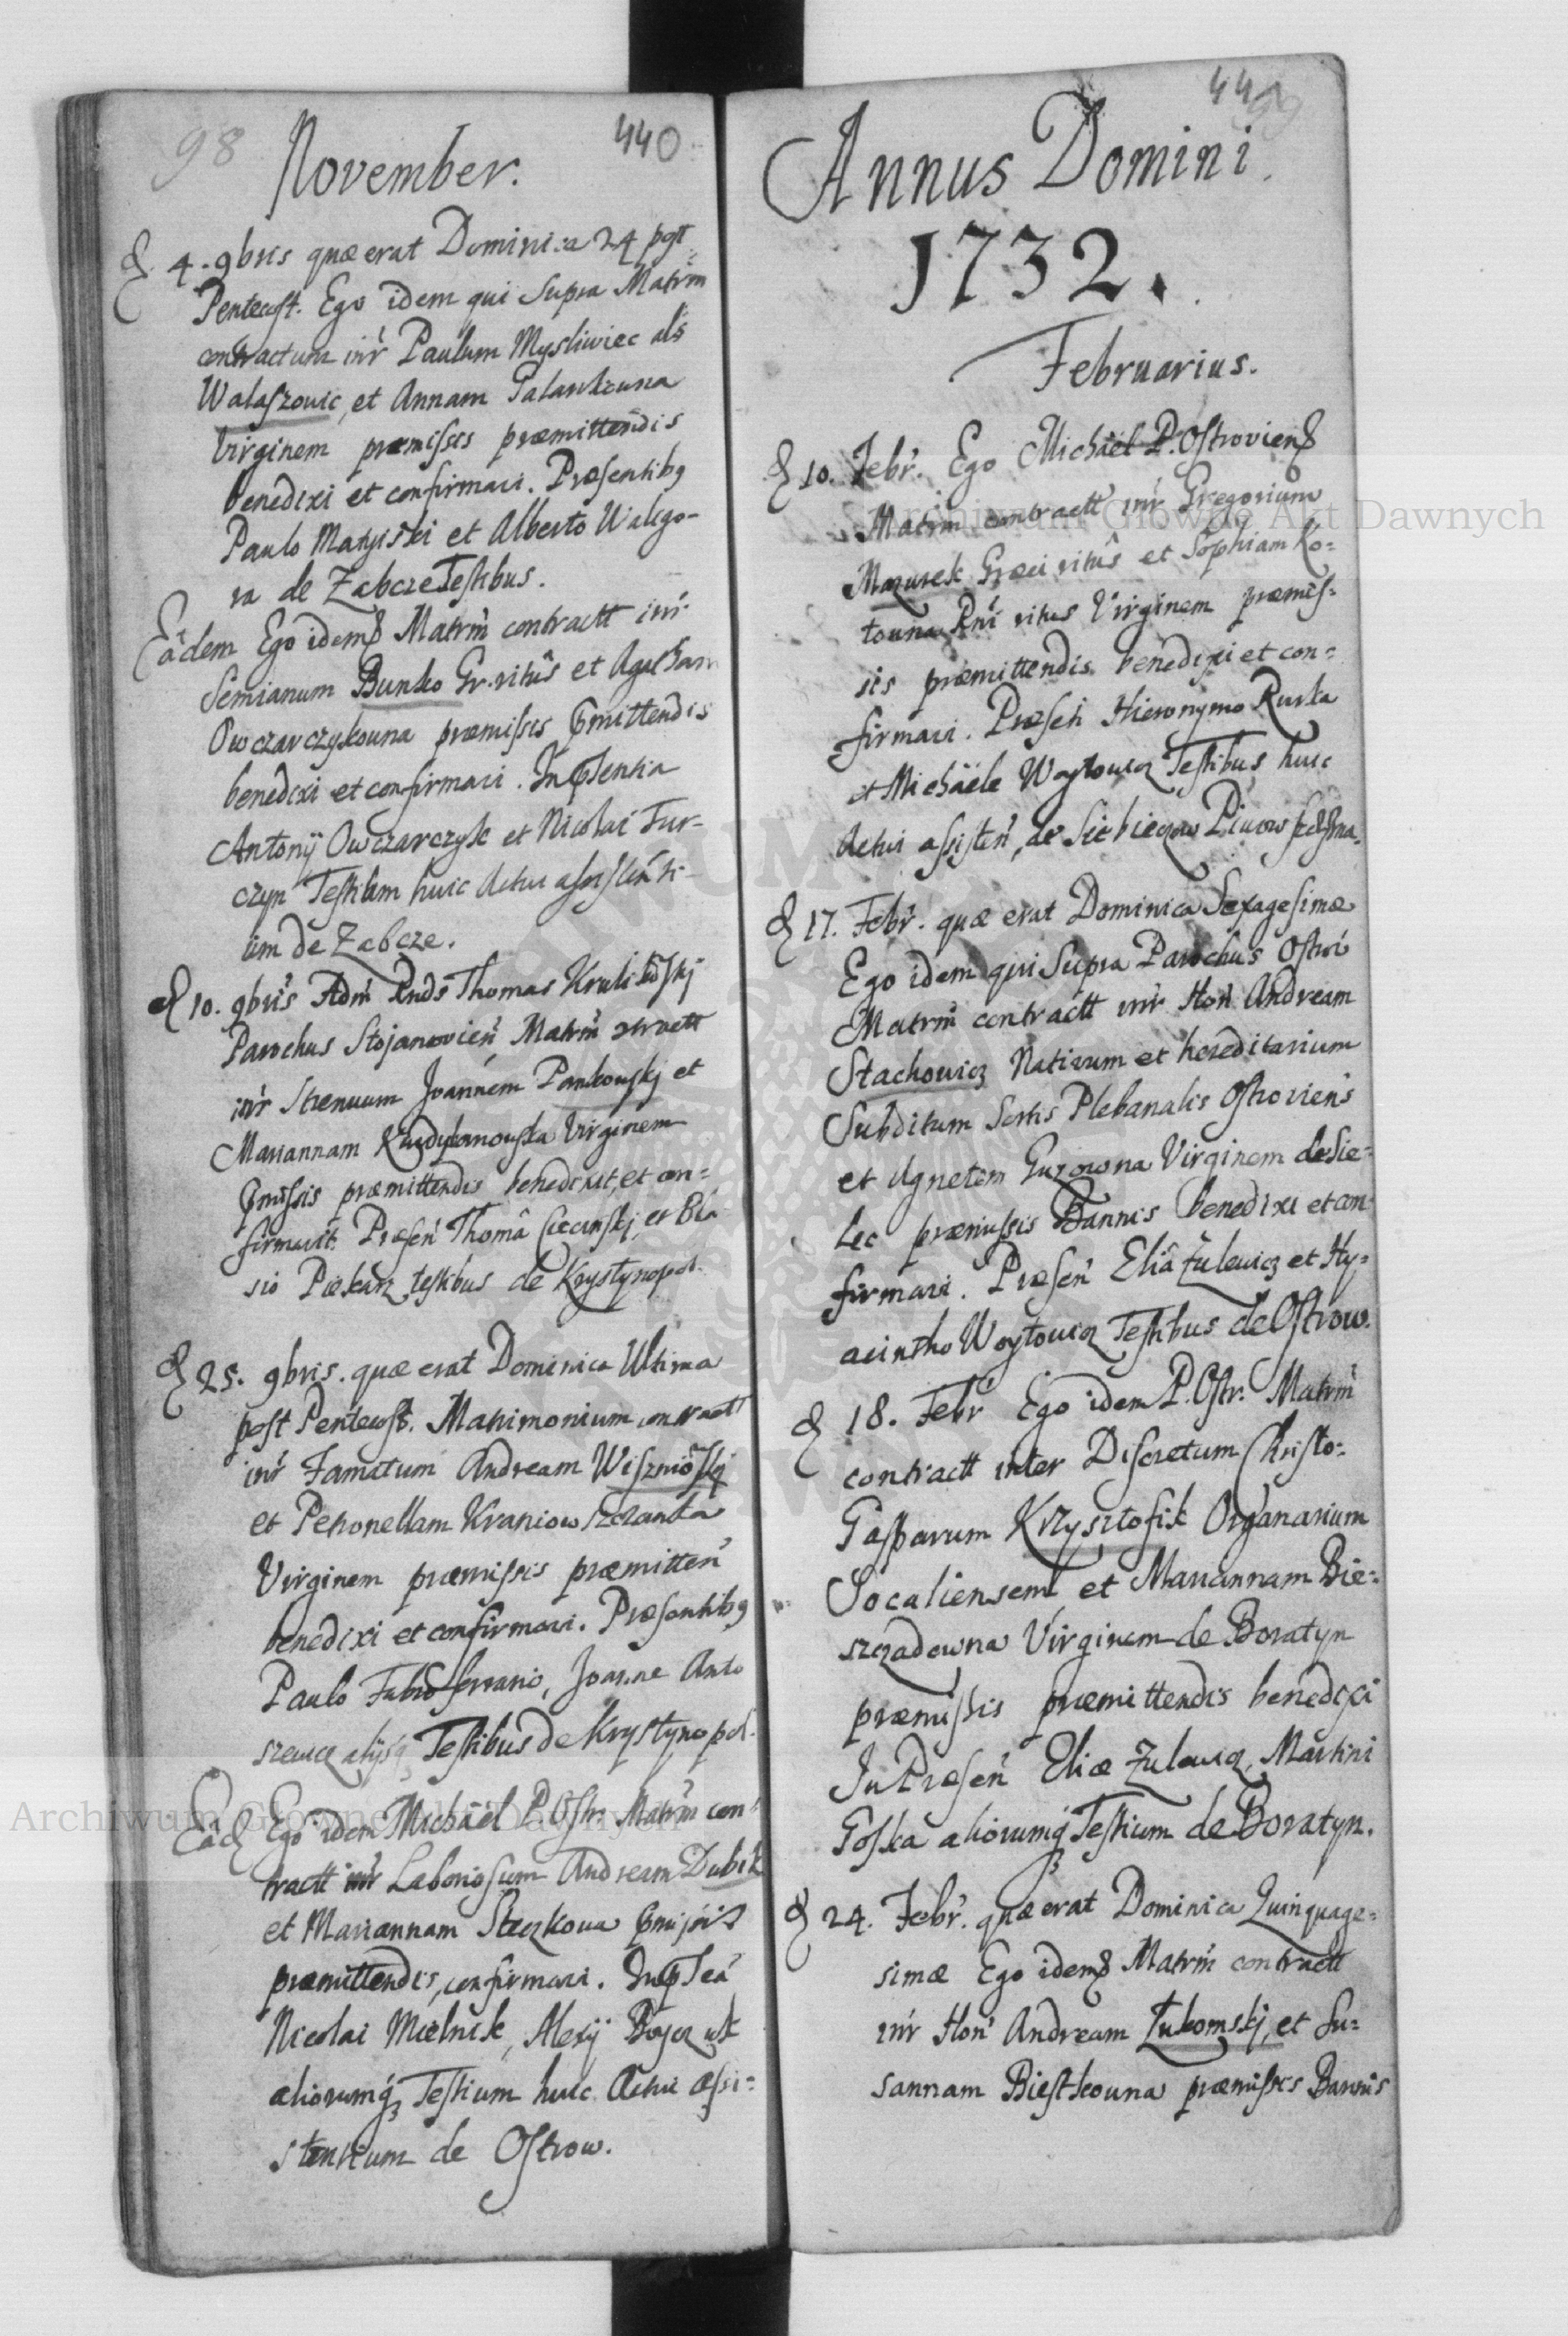 98
440
November.
d 4. 9bris quæ erat Dominica 24 post
Pentecost. Ego idem qui supra Matrim
contractum intr Paulum Mysliwiec als
Walaszowic, et Annam
Virginem præmissis præmittendis
benedixi et confirmavi. Præsentibg
Paulo Matyiski et Alberto Walego-
ra de Zabcze Testibus.
Eâdem Ego idem Matrim contractt intr
Semianum Bunko Gr. ritûs et Agatham
Owczarczykowna præmissis pmittendis
benedixi et confirmavi. In psentia
Antonij Owczarczyk et Nicolai Fur-
czyn Testium huic Actui assistenti-
um de Zabcze.
d 10. 9bris Adm Rnds Thomas
Parochus Stojanovien Matrim contractt
intr Strenuum Joannem Pankowskj et
Mariannam Virginem
pmissis præmittendis benedixit, et con=
firmavit. Præsen Thomâ et Bla
sio Piekarz testibus de Krystynopol.
d 25. 9bris. quæ erat Dominica Ultima
post Pentecost. Matrimonium contractt
intr Famatum Andream Wisznioskj
et Petronellam
Virginem præmissis præmitten
benedixi et confirmavi. Præsentibg
Paulo Fabro ferrario, Joanne Anto
szewicz alijsq Testibus de Krystynopol.
Eâd Ego idem Michaël P. Ostr. Matrim con=
tractt intr Laboriosum Andream Dubik
et Mariannam Steczkowa pmissis
præmittendis, confirmavi. In pseã
Nicolai Mielnik, Alexij
aliorumq3 Testium huic Actui assi=
stentium de Ostrow.
Annus Domini
1732.
Februarius.
d 10. Febr. Ego Michaël P. Ostroviens
Matrim contractt intr Gregorium
Mazurek Græci ritûs et Sophiam Ko=
towna Rni ritus Virginem præmis=
sis præmittendis benedixi et con=
firmavi. Præsen Hieronymo Rurka
et Michäele Woytowicz Testibus huic
Actui assisten, de
d 17. Febr. quæ erat Dominica Sexagesimæ
Ego idem qui supra Parochus Ostroi
Matrim contractt intr Hon Andream
Stachowicz Nativum et hereditarium
Subditum Sortis Plebanalis Ostroviens
et Agnetem Guzowna Virginem de Sie=
lec præmissis Bannis benedixi et con=
firmavi. Præsen Eliâ Zulewicz et Hy=
acintho Woytowicz Testibus de Ostrow.
d 18. Febr Ego idem P. Ostr: Matrim
contractt inter Discretum Christo=
Gasparum Krzysztofik Organarium
Socaliensem et Mariannam Bie=
szczadowna Virginem de Boratyn
præmissis præmittendis benedixi
In Præsen Eliæ Zulewicz, Martini
Goska aliorumq3 Testium de Boratyn.
d 24. Febr. quæ erat Dominica Quinquage=
simæ Ego idem Matrim contractt
intr Hon Andream Zukomskj, et Su=
sannam Biestkowna præmissis Bannis
Archiwum Główne Akt Dawnych
Archiwum Główne Akt Dawnych